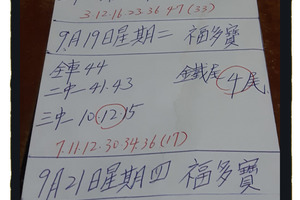 3.12.16.23.36.47(33)
9月19日星期二 福多寶
全車44
二中41.43 金鐵尾 4尾
三中 10 12 15
7.11.12.30 34 36(17)
9月21日星期四 福多寶